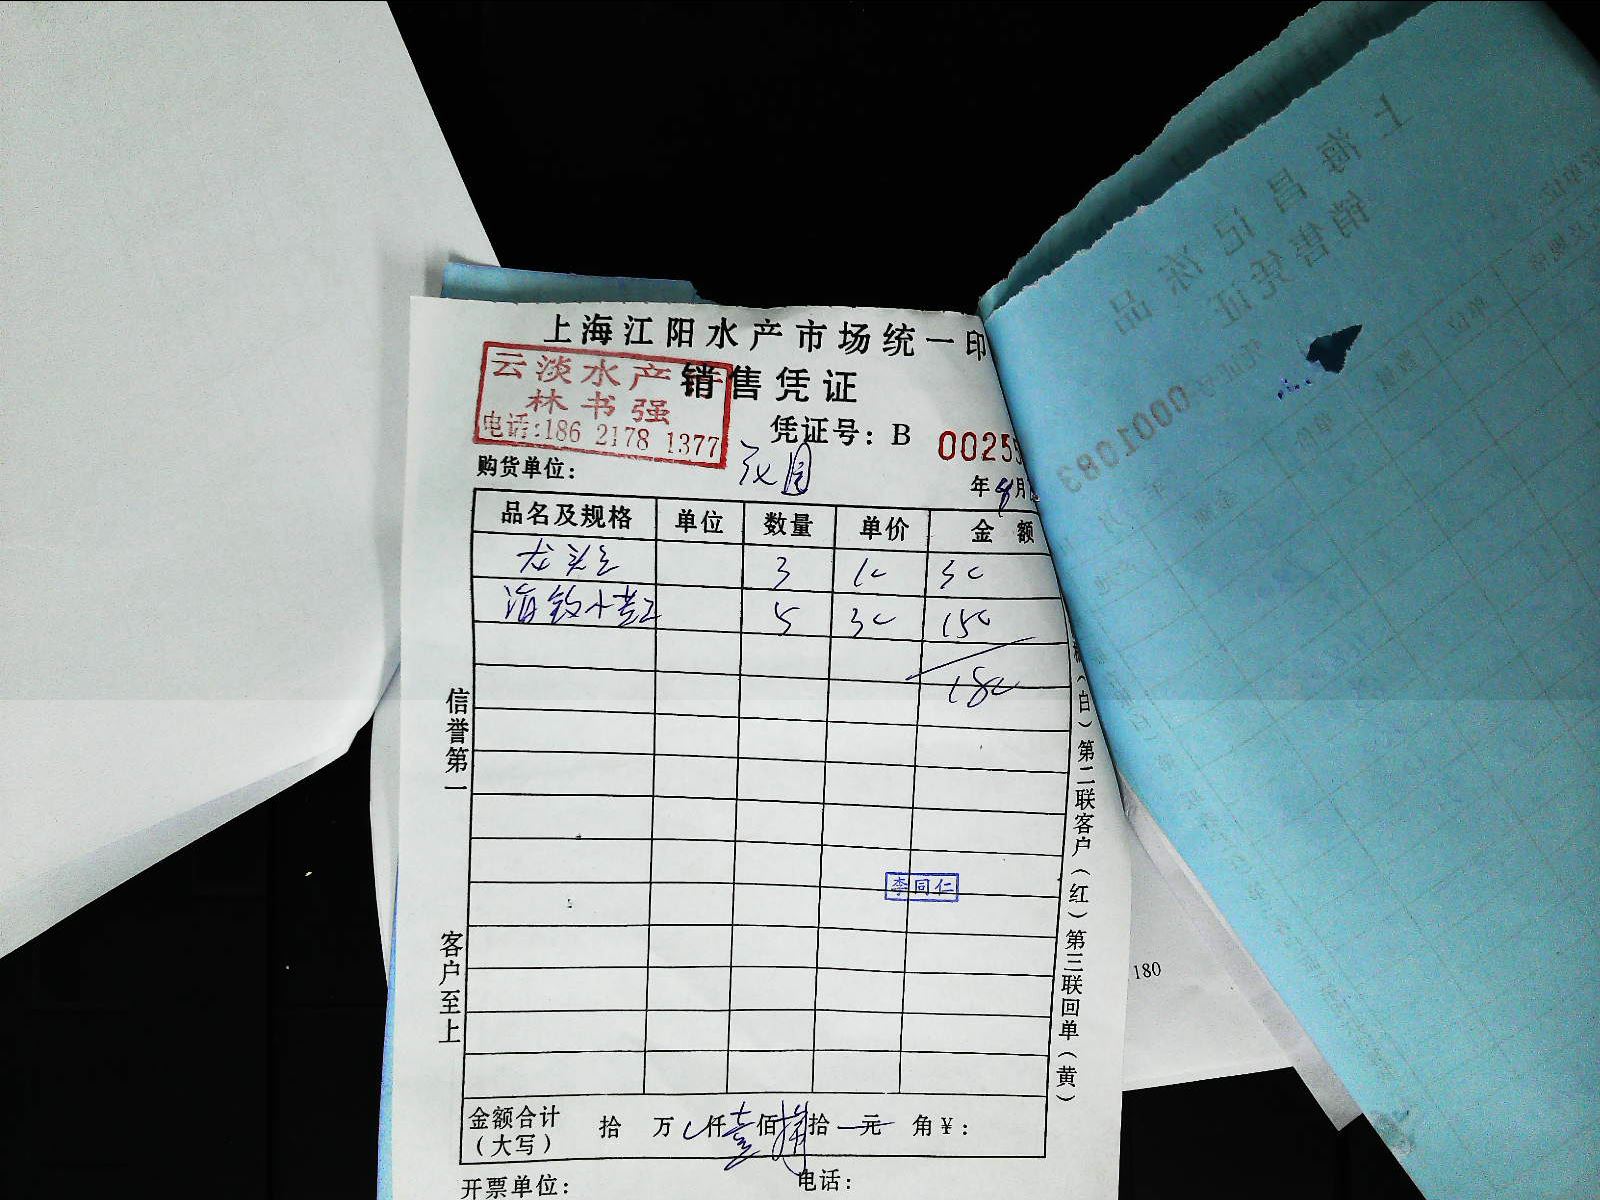 上海江阳水产市场统一印
销售凭证
云淡水产
林书强
电话:186 2178 1377
凭证号：B 0025
购货单位：
年 月
品名及规格 单位 数量 单价 金 额
龙头 3 10 30
海钓小黄 5 30 150
180
信誉第一
客户至上
（白）第二联客户（红）第三联回单（黄）
李同仁
金额合计（大写） 拾 万 仟 壹 佰 捌 拾 元 角 ¥：
开票单位： 电话：
180
上海昌记冻品
销售凭证
0001083